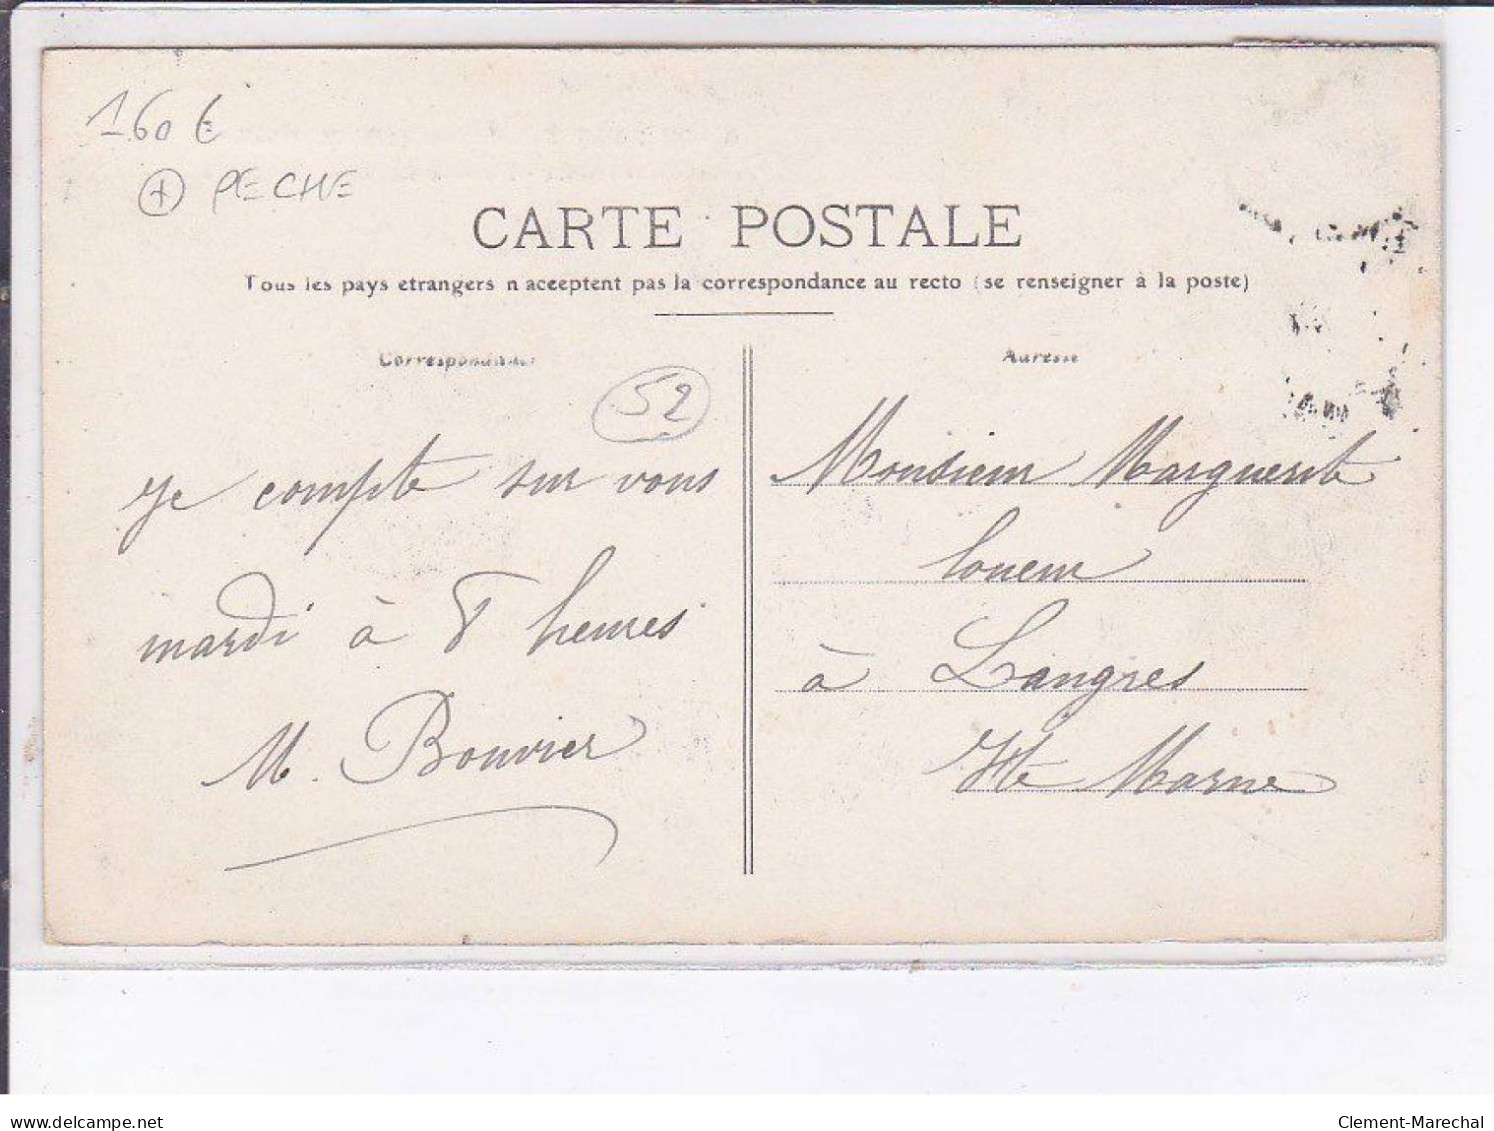 160 €
+ PECHE
CARTE POSTALE
Tous les pays etrangers n acceptent pas la correspondance au recto (se renseigner à la poste)
Correspondance
52
Je compte sur vous
mardi à 8 heures
M. Bouvier
Adresse
Monsieur Marguerite
loueur
à Langres
Hte Marne
delcampe.net
Clement-Marechal